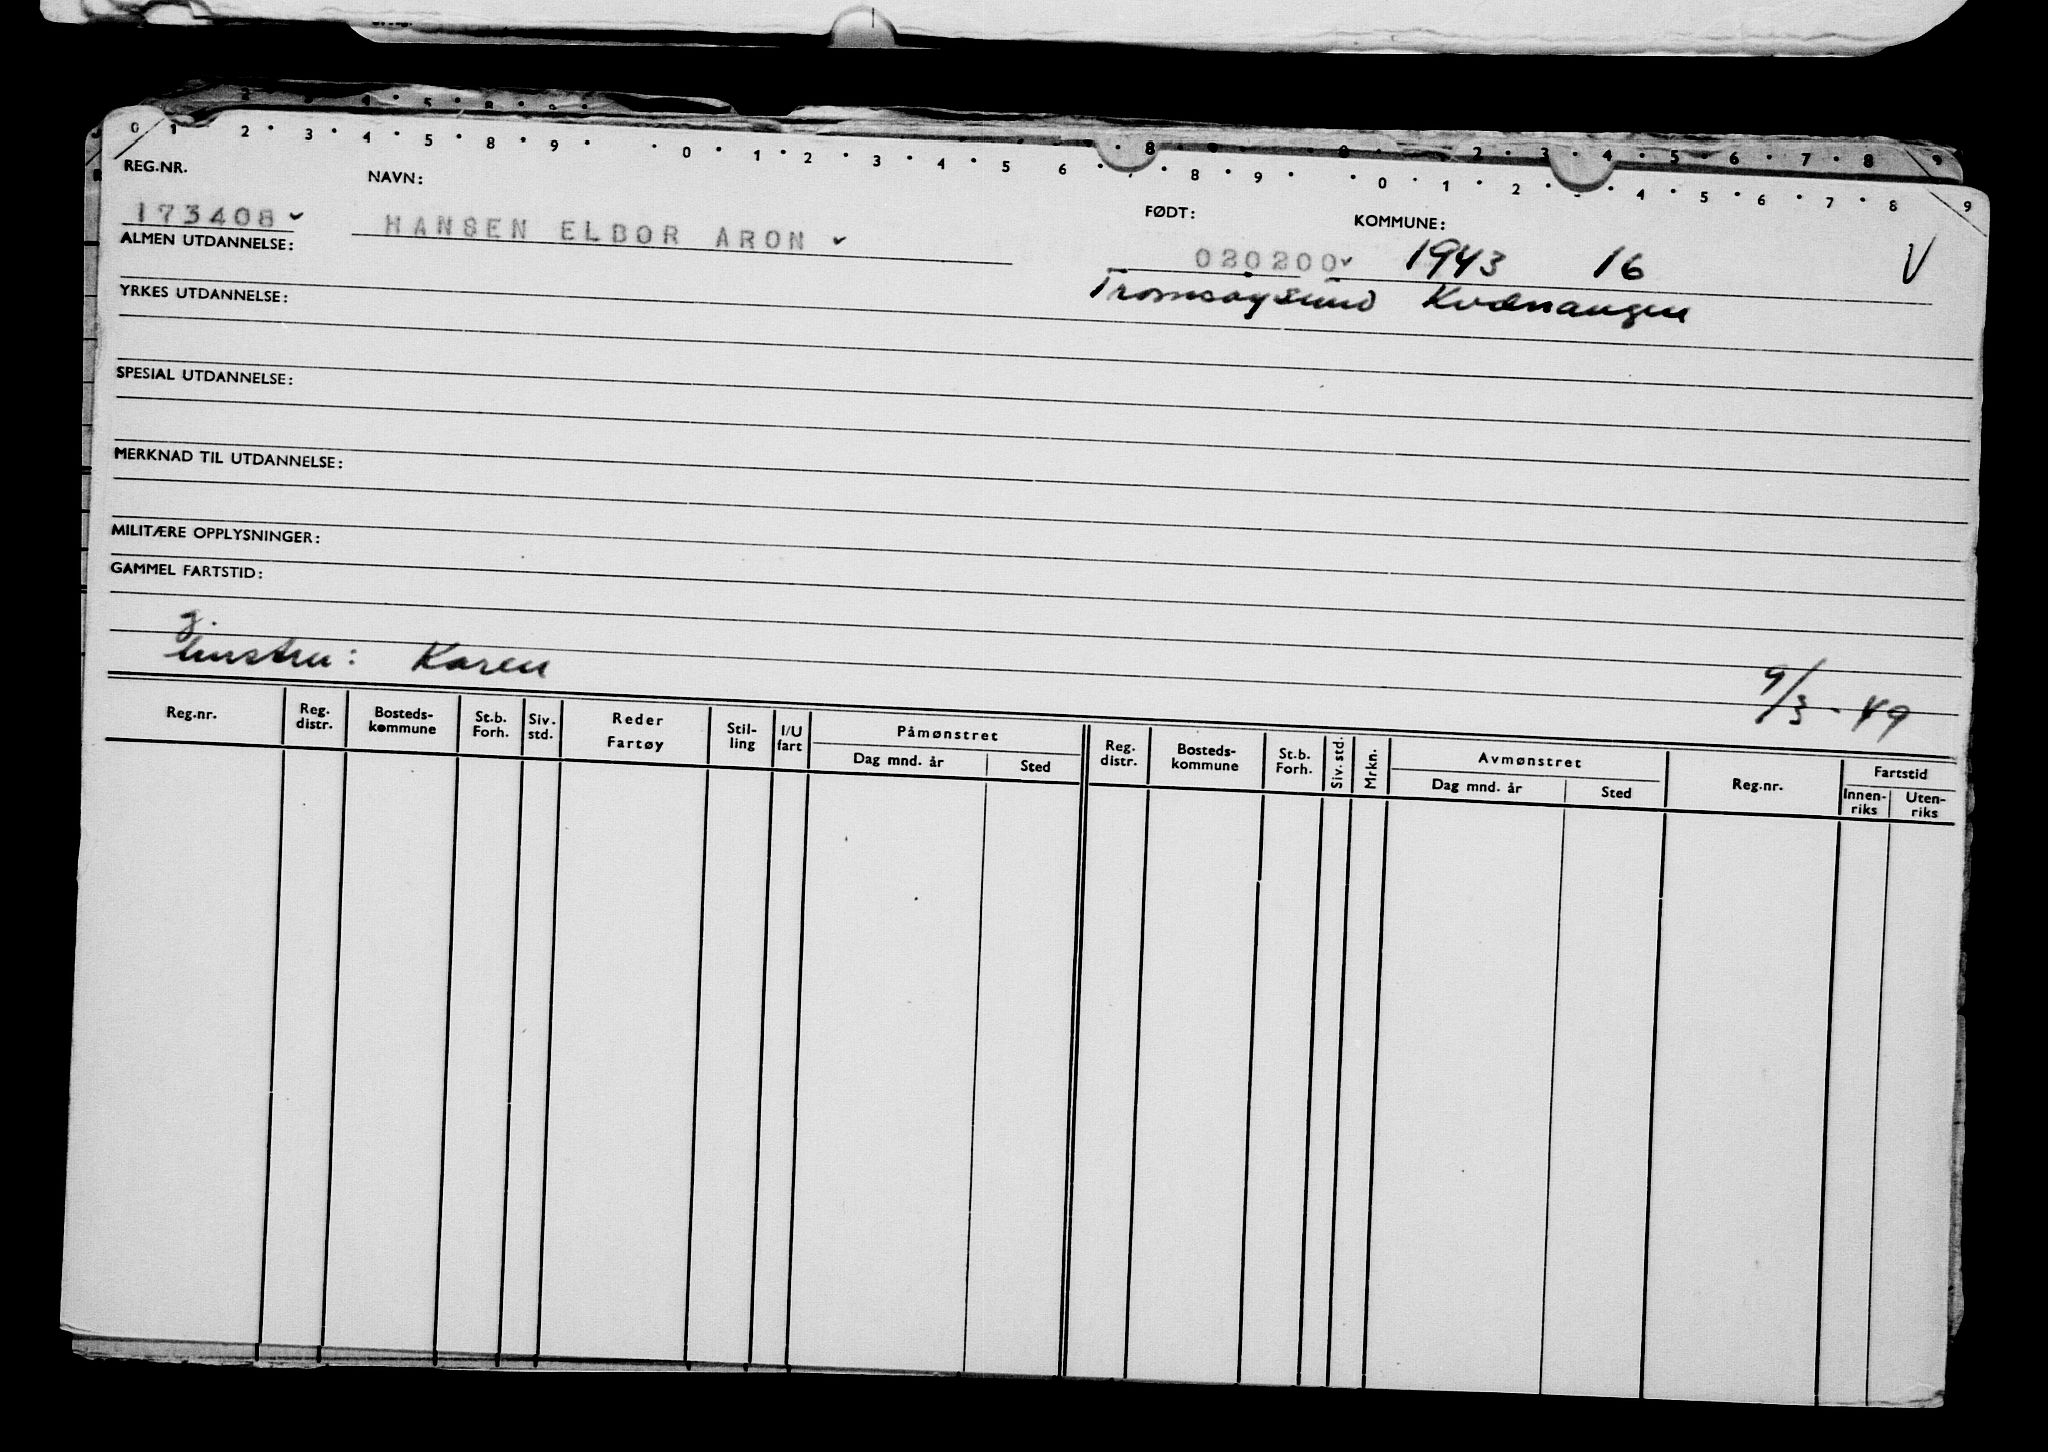 0 1 2 · 3 · 4 · 5 · 8 · 9 · · 0 · 1 · 2 · 3 · 4 · 5 6 · 7 · 8 · 9 · · 0 · 1 · 2 · · 4 · 5 · 6 · 7 · 8 9
REG.NR. NAVN: FØDT: KOMMUNE:
173408 HANSEN ELBOR ARON 020200 1943 16 V
ALMEN UTDANNELSE:
Tromsøysund Kvænangen
YRKES UTDANNELSE:
SPESIAL UTDANNELSE:
MERKNAD TIL UTDANNELSE:
MILITÆRE OPPLYSNINGER:
GAMMEL FARTSTID:
g.
hustru: Karen
9/3 - 49
Reg.nr. Reg. distr. Bosteds-kommune St.b. Forh. Siv. std. Reder Fartøy Stil-ling I/U fart Påmønstret Dag mnd. år Sted Reg. distr. Bosteds-kommune St.b. Forh. Siv. std. Mrkn. Avmønstret Dag mnd. år Sted Reg.nr. Fartstid Innen-riks Uten-riks